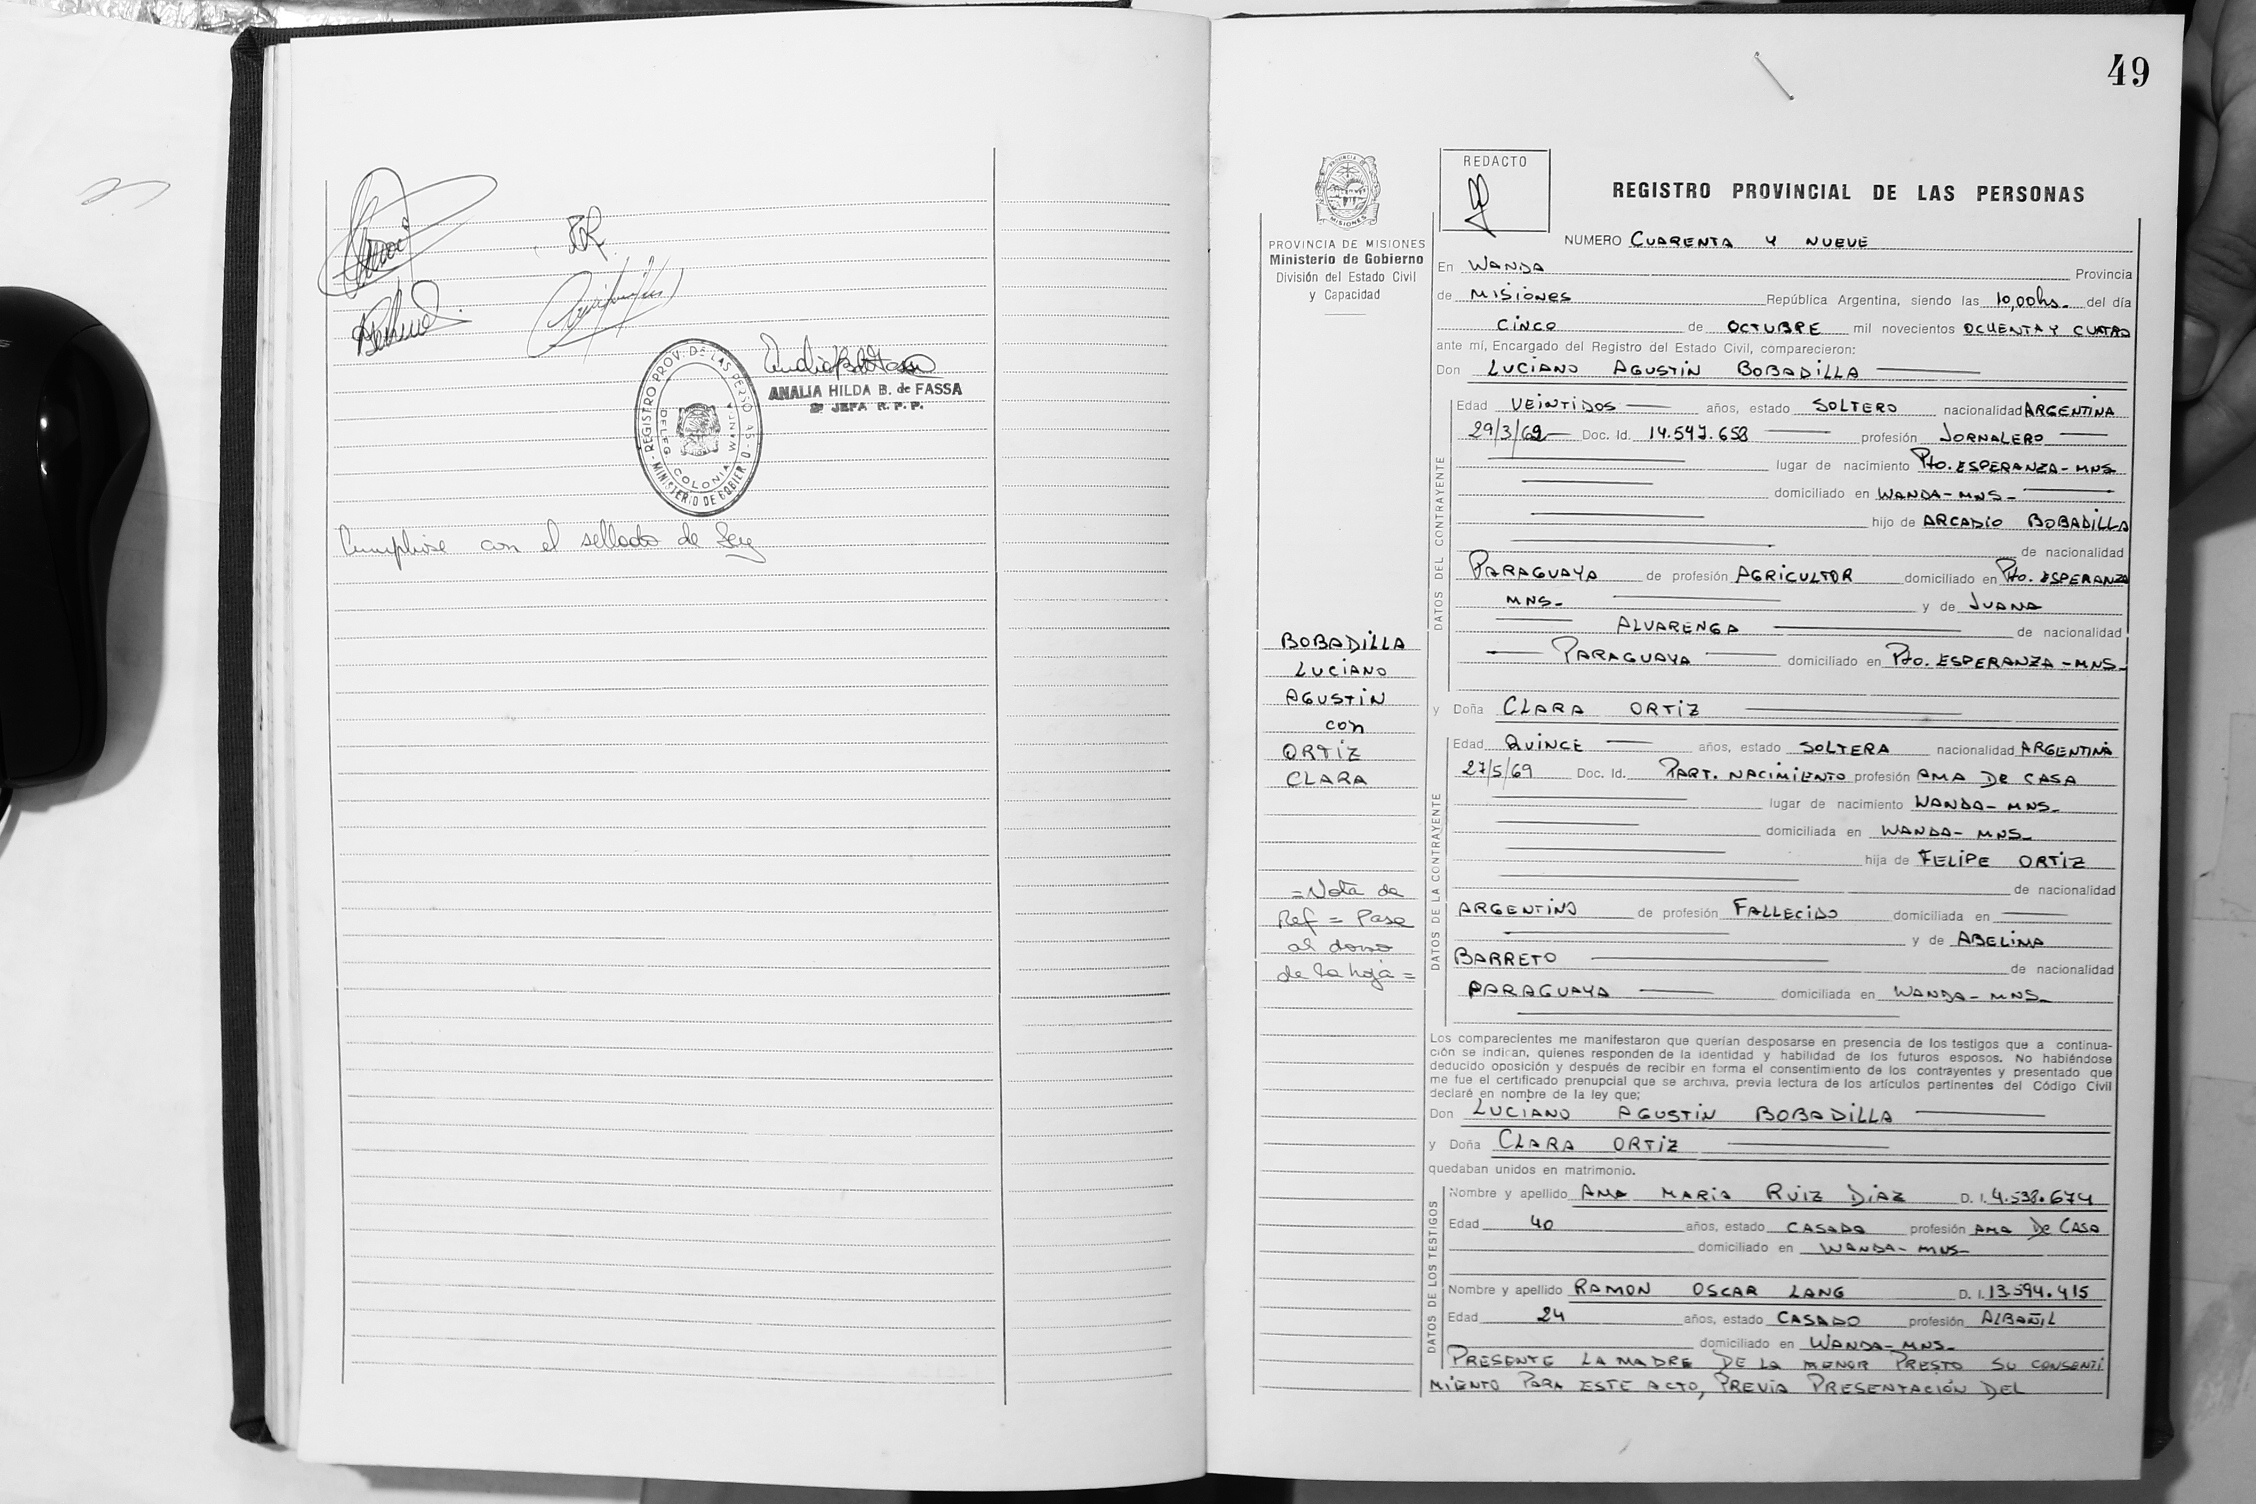 ANALIA HILDA B. de FASSA
2ª JEFA R.P.P.
REGISTRO PROV. DE LAS PERSONAS - MINISTERIO DE GOBIERNO
DELEG. COLONIA WANDA
Cumplióse con el sellado de Ley
49
REDACTO
REGISTRO PROVINCIAL DE LAS PERSONAS
PROVINCIA DE MISIONES
Ministerio de Gobierno
División del Estado Civil
y Capacidad
NUMERO CUARENTA Y NUEVE
En WANDA Provincia
de MISIONES República Argentina, siendo las 10,00hs. del día
CINCO de OCTUBRE mil novecientos OCHENTA Y CUATRO
ante mí, Encargado del Registro del Estado Civil, comparecieron:
Don LUCIANO AGUSTIN BOBADILLA
DATOS DEL CONTRAYENTE
Edad VEINTIDOS años, estado SOLTERO nacionalidad ARGENTINA
29/3/62 Doc. Id. 14.547.658 profesión JORNALERO
lugar de nacimiento Pto. ESPERANZA - MNS-
domiciliado en WANDA - MNS -
hijo de ARCADIO BOBADILLA
de nacionalidad
PARAGUAYA de profesión AGRICULTOR domiciliado en Pto. ESPERANZA
MNS- y de JUANA
ALVARENGA de nacionalidad
PARAGUAYA domiciliado en Pto. ESPERANZA - MNS-
BOBADILLA
LUCIANO
AGUSTIN
con
ORTIZ
CLARA
= Nota de
Ref = Pase
al dorso
de la hoja =
y Doña CLARA ORTIZ
DATOS DE LA CONTRAYENTE
Edad QUINCE años, estado SOLTERA nacionalidad ARGENTINA
27/5/69 Doc. Id. PART. NACIMIENTO profesión AMA DE CASA
lugar de nacimiento WANDA - MNS-
domiciliada en WANDA - MNS-
hija de FELIPE ORTIZ
de nacionalidad
ARGENTINO de profesión FALLECIDO domiciliada en
y de ABELINA
BARRETO de nacionalidad
PARAGUAYA domiciliada en WANDA - MNS-
Los comparecientes me manifestaron que querían desposarse en presencia de los testigos que a continua-
ción se indican, quienes responden de la identidad y habilidad de los futuros esposos. No habiéndose
deducido oposición y después de recibir en forma el consentimiento de los contrayentes y presentado que
me fue el certificado prenupcial que se archiva, previa lectura de los artículos pertinentes del Código Civil
declaré en nombre de la ley que;
Don LUCIANO AGUSTIN BOBADILLA
y Doña CLARA ORTIZ
quedaban unidos en matrimonio.
DATOS DE LOS TESTIGOS
Nombre y apellido ANA MARIA RUIZ DIAZ D. I. 4.538.674
Edad 40 años, estado CASADA profesión AMA DE CASA
domiciliado en WANDA - MNS-
Nombre y apellido RAMON OSCAR LANG D. I. 13.594.415
Edad 24 años, estado CASADO profesión ALBAÑIL
domiciliado en WANDA - MNS-
PRESENTE LA MADRE DE LA MENOR PRESTO SU CONSENTI
MIENTO PARA ESTE ACTO, PREVIA PRESENTACIÓN DEL